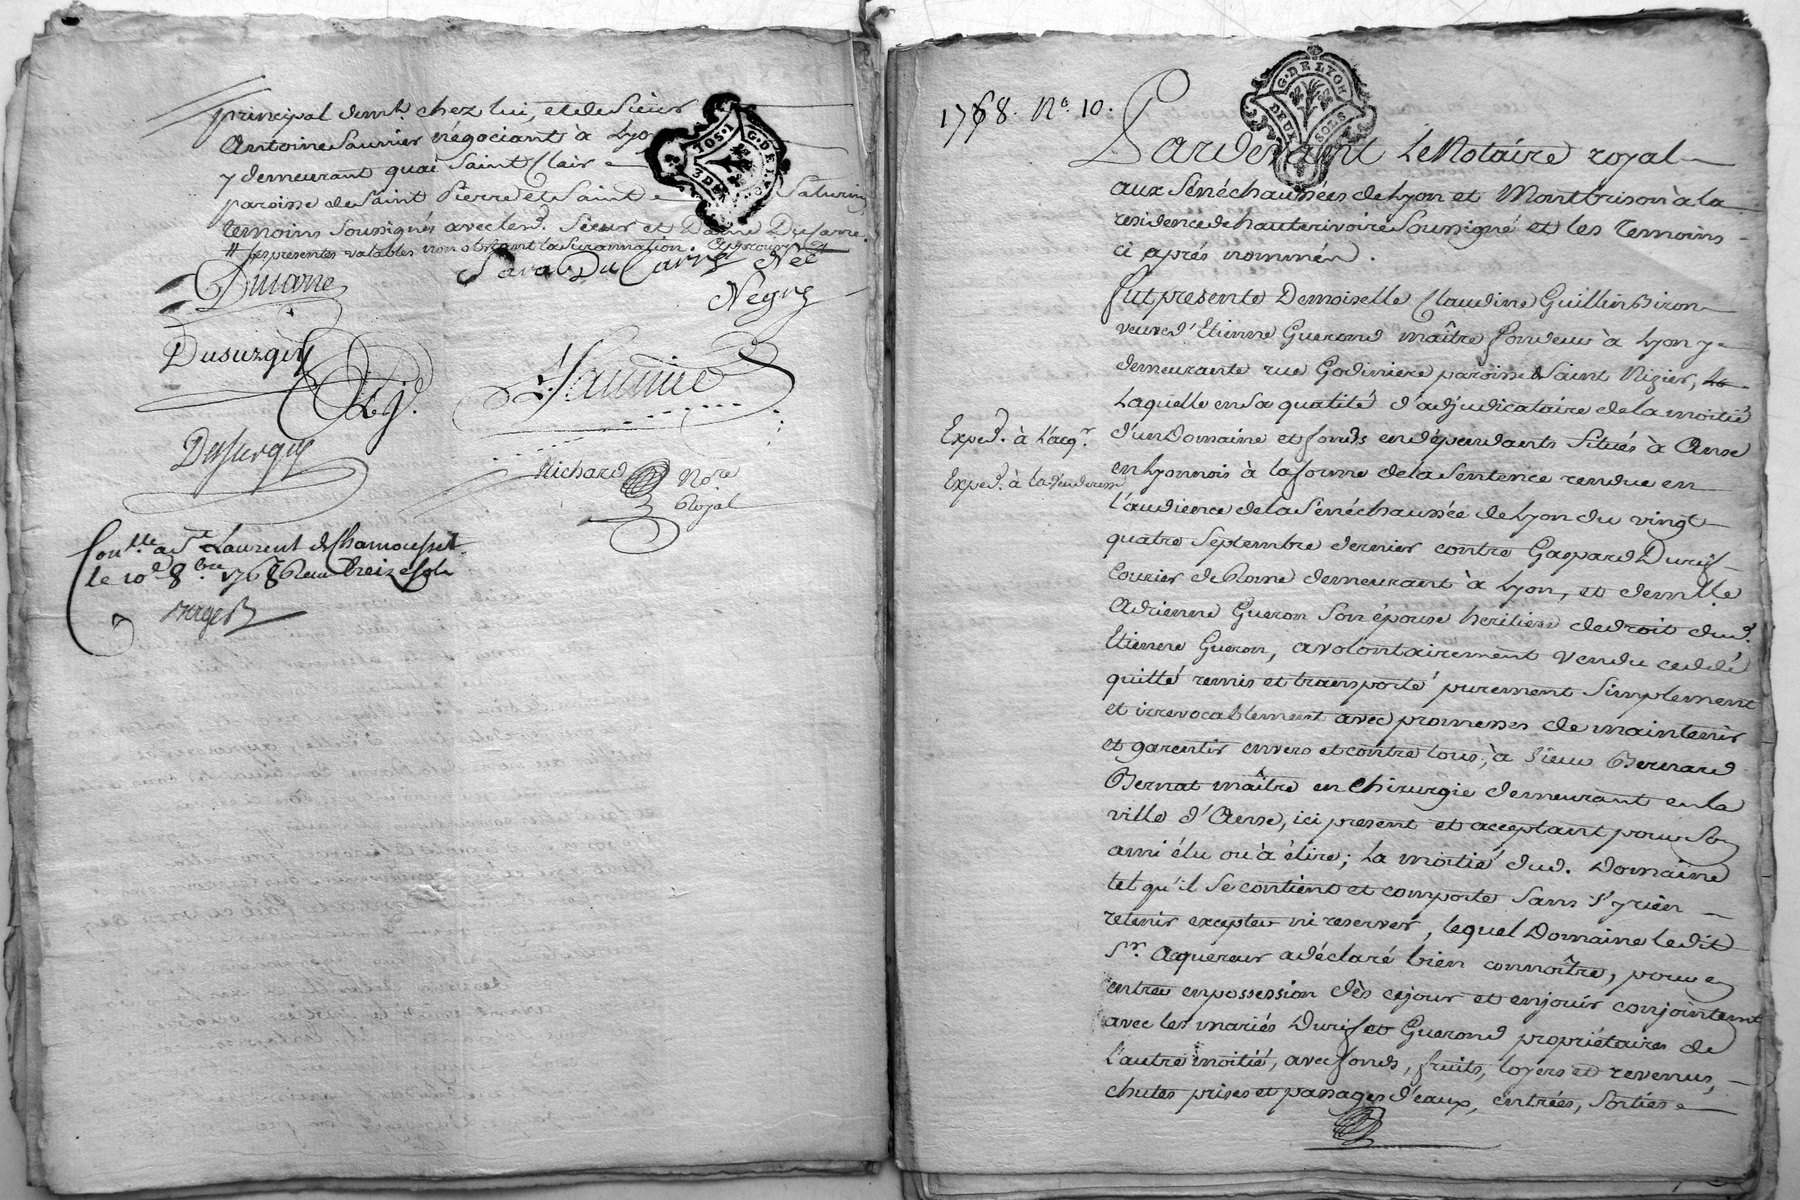 principal demt. chez lui, et de Sieur
Antoine Saunier négociant à Lyon
y demeurant quai Saint Clair
paroisse de Saint Pierre et Saint Saturnin
temoins soussignés avec lesd. Sieur et Dame
// ses presentes valables non obstant la Surannation.
Née
Negre
Dusurgey
Saunnié
Richard Nore
Royal
Conlle. a St. Laurent de Chamousset
le 10e 8bre 1768 Reçu treize sols
G. DE LYON
DEUX SOLS
1768. No. 10.
Pardevant Le Notaire royal
aux Sénéchaussées de Lyon et Montbrison à la
residence de hauterivoire Soussigné et les temoins
ci après nommés.
fut presente Demoiselle Claudine Guillin Biron
veuve d'Etienne Guerond maître fondeur à Lyon y
demeurante rue Godiniere paroisse Saint Nizier,
Laquelle en sa qualité d'adjudicataire de la moitié
Exped. à l'acqr.
d'un Domaine et fonds en dépendants Situés à Anse
en Lyonnois à la forme de la Sentence rendue en
Exped. à la venderesse
l'audience de la Sénéchaussée de Lyon du vingt
quatre Septembre dernier contre Gaspard Durif
Courier de Rome demeurant à Lyon, et demlle.
Adrienne Gueron Son épouse heritiere de droit dud.
Etienne Gueron, a volontairement vendu ceddé
quitté remis et transporté purement Simplement
et irrevocablement avec promesses de maintenir
et garentir envers et contre tous, à Sieur Bernard
Bernat maître en Chirurgie demeurant en la
ville d'Anse, ici present et acceptant pour Son
ami élu ou à élire; La moitié dud. Domaine
tel qu'il Se contient et comporte Sans S'y rien
retenir excepter ni reserver, lequel Domaine ledit
Sr. Acquereur a déclaré bien connoître, pour en
entrer en possession dès ce jour et en jouir conjointemt
avec les mariés Durif et Guerond propriétaires de
L'autre moitié, avec fonds, fruits, loyers et revenus,
chutes prises et passages d'eaux, entrées, Sorties